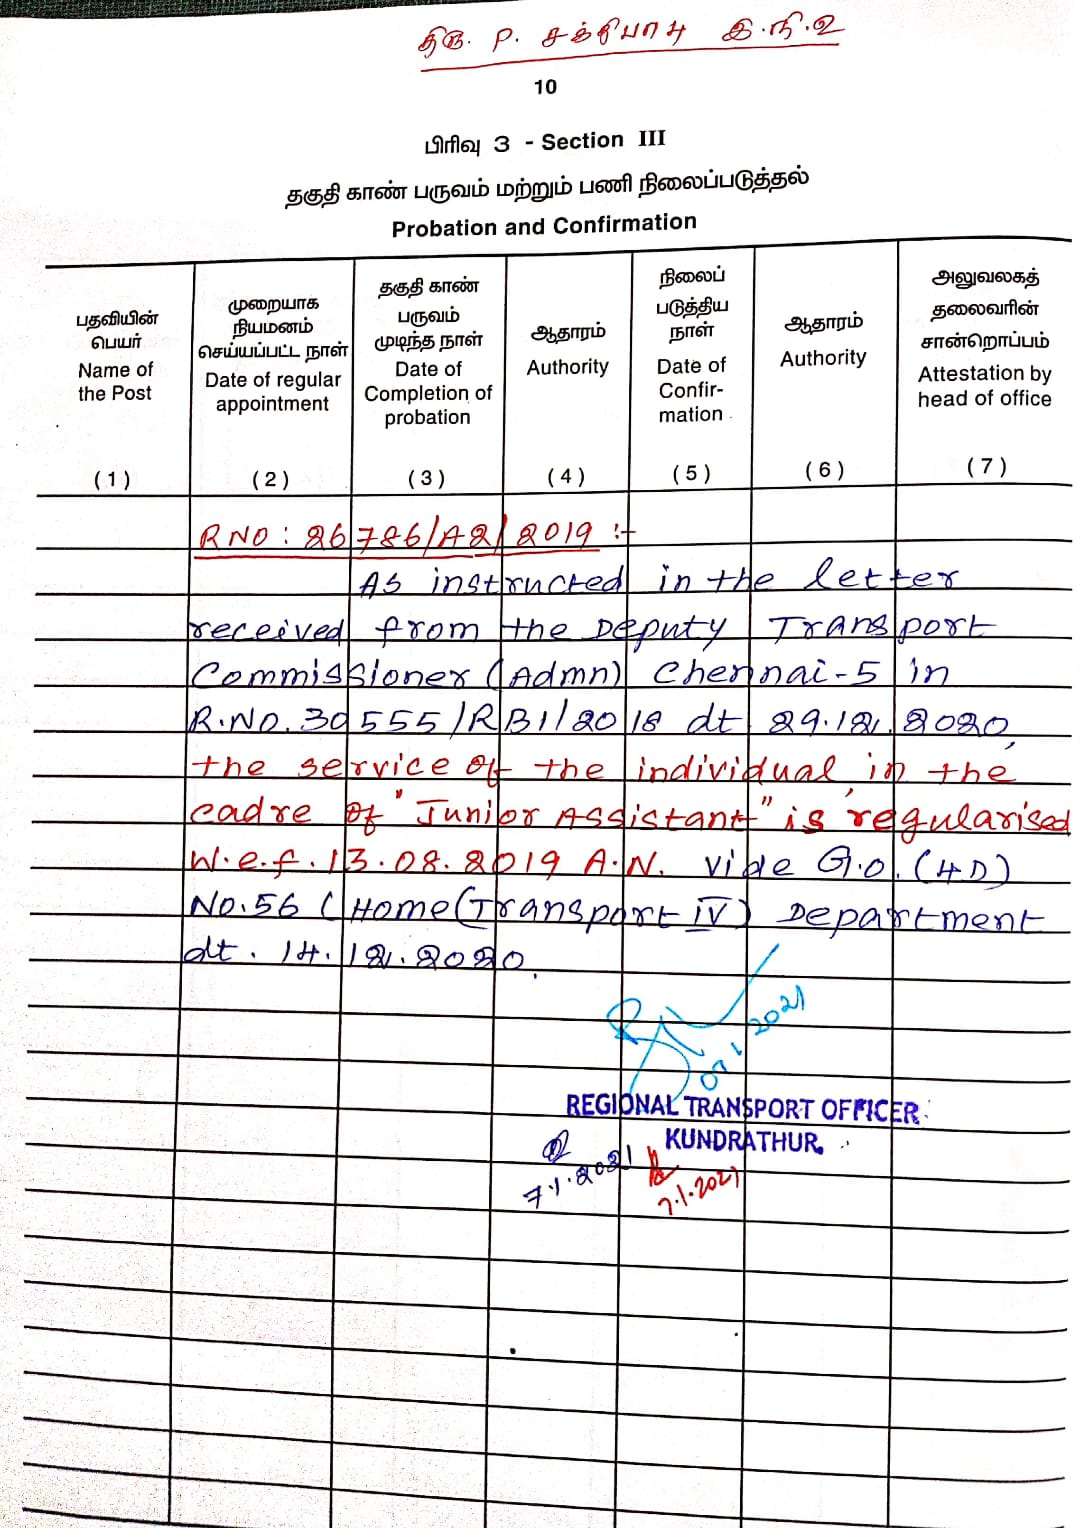 திரு. P. சக்திபாபு இ.நி.உ
10
பிரிவு 3 - Section III
தகுதி காண் பருவம் மற்றும் பணி நிலைப்படுத்தல்
Probation and Confirmation
பதவியின்
பெயர்
Name of
the Post
(1)
முறையாக
நியமனம்
செய்யப்பட்ட நாள்
Date of regular
appointment
(2)
தகுதி காண்
பருவம்
முடிந்த நாள்
Date of
Completion of
probation
(3)
ஆதாரம்
Authority
(4)
நிலைப்
படுத்திய
நாள்
Date of
Confir-
mation
(5)
ஆதாரம்
Authority
(6)
அலுவலகத்
தலைவரின்
சான்றொப்பம்
Attestation by
head of office
(7)
R NO : 26786/A2/2019 :-
AS instructed in the letter
received from the Deputy Transport
Commissioner (Admn) Chennai-5 in
R.NO.30555/RB1/2018 dt 29.12.2020,
the service of the individual in the
cadre of "Junior Assistant" is regularised
W.e.f. 13.08.2019 A.N. vide G.O. (4D)
No.56 (Home (Transport IV) Department
dt. 14.12.2020.
07.1.2021
REGIONAL TRANSPORT OFFICER
KUNDRATHUR.
7.1.2021
7.1.2021